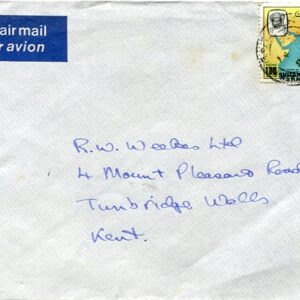 air mail
avion
R.W. Weekes Ltd
4 Mount Pleasant Road
Tunbridge Wells
Kent.